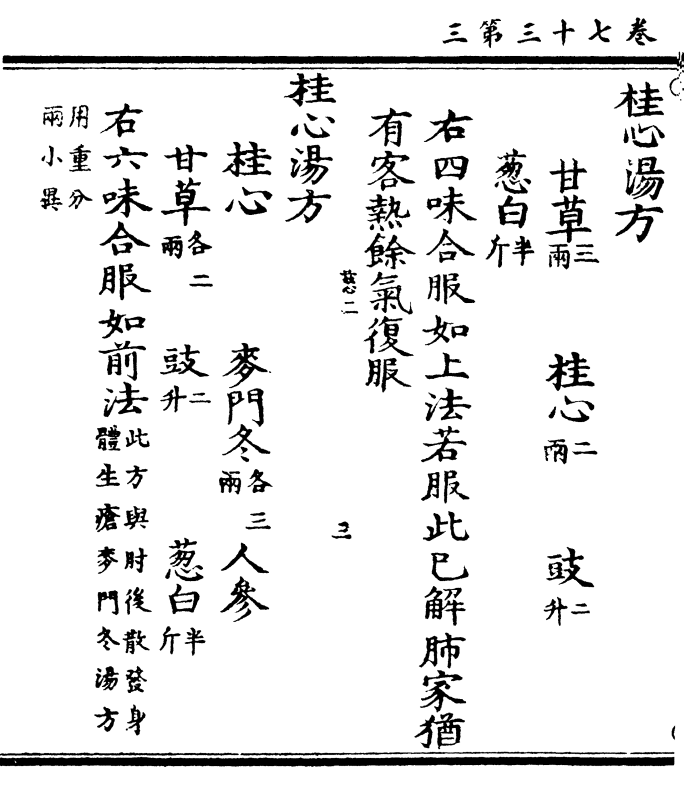 卷七十三第三
桂心湯方
甘草三兩 桂心二兩 豉二升
葱白半斤
右四味合服如上法若服此已解肺家猶
有客熱餘氣復服
三
桂心湯方
桂心 麥門冬各三兩 人參
甘草各二兩 豉二升 葱白半斤
右六味合服如前法此方與肘後散發身體生瘡麥門冬湯方
用重分兩小異